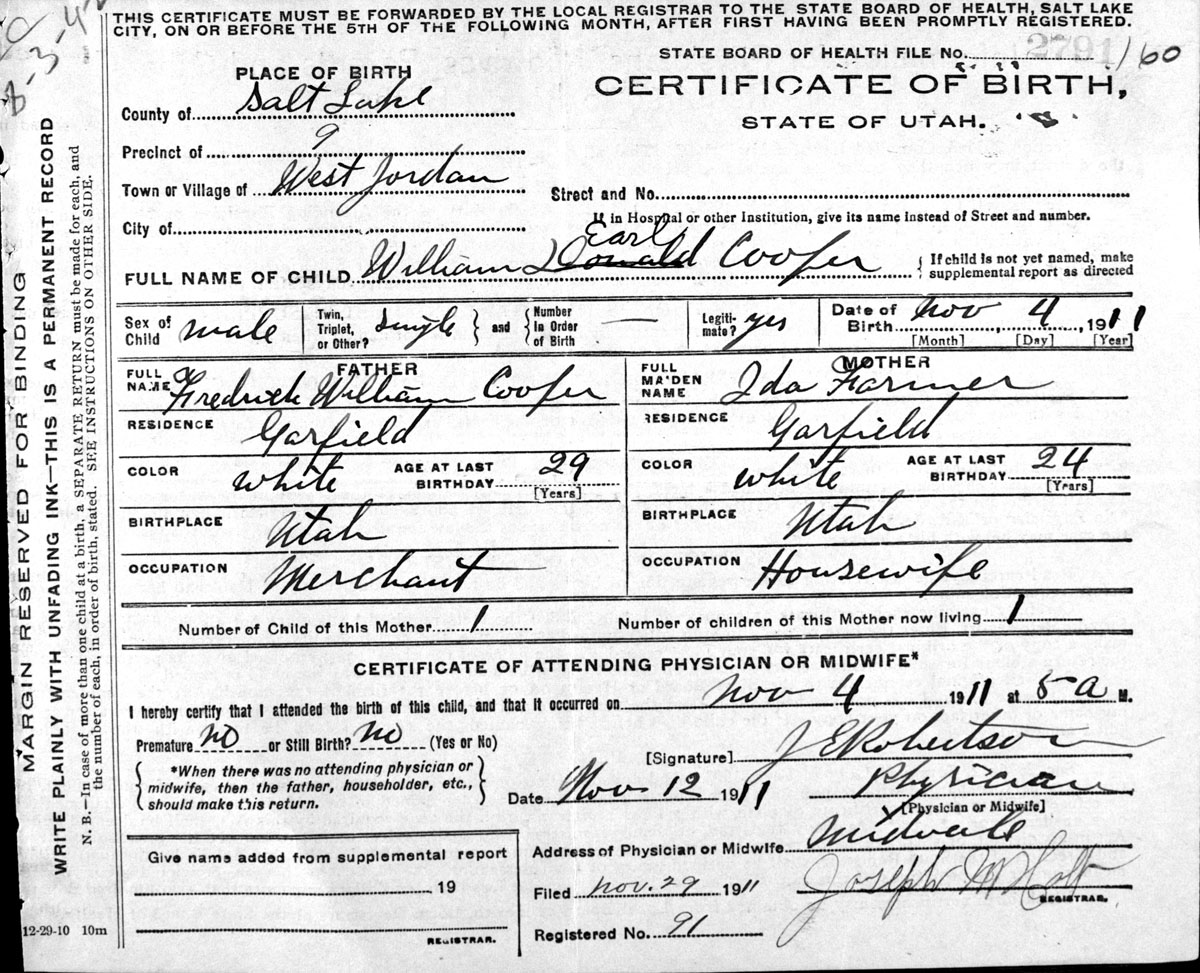 THIS CERTIFICATE MUST BE FORWARDED BY THE LOCAL REGISTRAR TO THE STATE BOARD OF HEALTH, SALT LAKE
CITY, ON OR BEFORE THE 5TH OF THE FOLLOWING MONTH, AFTER FIRST HAVING BEEN PROMPTLY REGISTERED.
STATE BOARD OF HEALTH FILE No. 2791/160
PLACE OF BIRTH
CERTIFICATE OF BIRTH,
STATE OF UTAH.
County of Salt Lake
Precinct of 9
Town or Village of West Jordan
Street and No.
If in Hospital or other Institution, give its name instead of Street and number.
City of
Earl
FULL NAME OF CHILD William Donald Cooper { If child is not yet named, make
supplemental report as directed
Sex of Child male Twin, Triplet, or Other? single } and { Number In Order of Birth — Legiti-mate? yes Date of Birth Nov 4, 1911
[Month] [Day] [Year]
FATHER
FULL NAME Fredrick William Cooper
RESIDENCE Garfield
COLOR white AGE AT LAST BIRTHDAY 29
[Years]
BIRTHPLACE Utah
OCCUPATION Merchant
MOTHER
FULL MAIDEN NAME Ida Farmer
RESIDENCE Garfield
COLOR white AGE AT LAST BIRTHDAY 24
[Years]
BIRTHPLACE Utah
OCCUPATION Housewife
Number of Child of this Mother 1 Number of children of this Mother now living 1
CERTIFICATE OF ATTENDING PHYSICIAN OR MIDWIFE*
I hereby certify that I attended the birth of this child, and that it occurred on Nov 4 1911 at 5 a M.
Premature no or Still Birth? no (Yes or No)
*When there was no attending physician or
midwife, then the father, householder, etc.,
should make this return.
[Signature] J E Robertson
Date Nov 12 1911 Physician
[Physician or Midwife]
Address of Physician or Midwife Midvale
Give name added from supplemental report
19
REGISTRAR.
Filed Nov. 29 1911 Joseph M Holt
REGISTRAR.
Registered No. 91
12-29-10 10m
MARGIN RESERVED FOR BINDING
WRITE PLAINLY WITH UNFADING INK—THIS IS A PERMANENT RECORD
N. B.—In case of more than one child at a birth, a SEPARATE RETURN must be made for each, and
the number of each, in order of birth, stated. SEE INSTRUCTIONS ON OTHER SIDE.